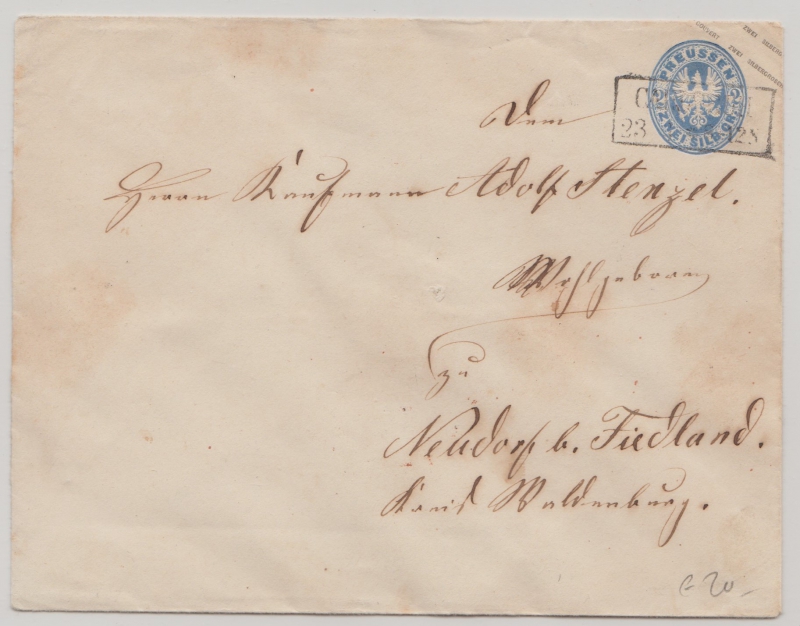 COUVERT ZWEI SILBERGROSCHEN
PREUSSEN
2 2
ZWEI SILB. GR.
23 12
Dem
Herrn Kaufmann Adolf Stenzel.
Wohlgeboren
zu
Neudorf b. Fiedland.
Kreis Waldenburg.
20,-